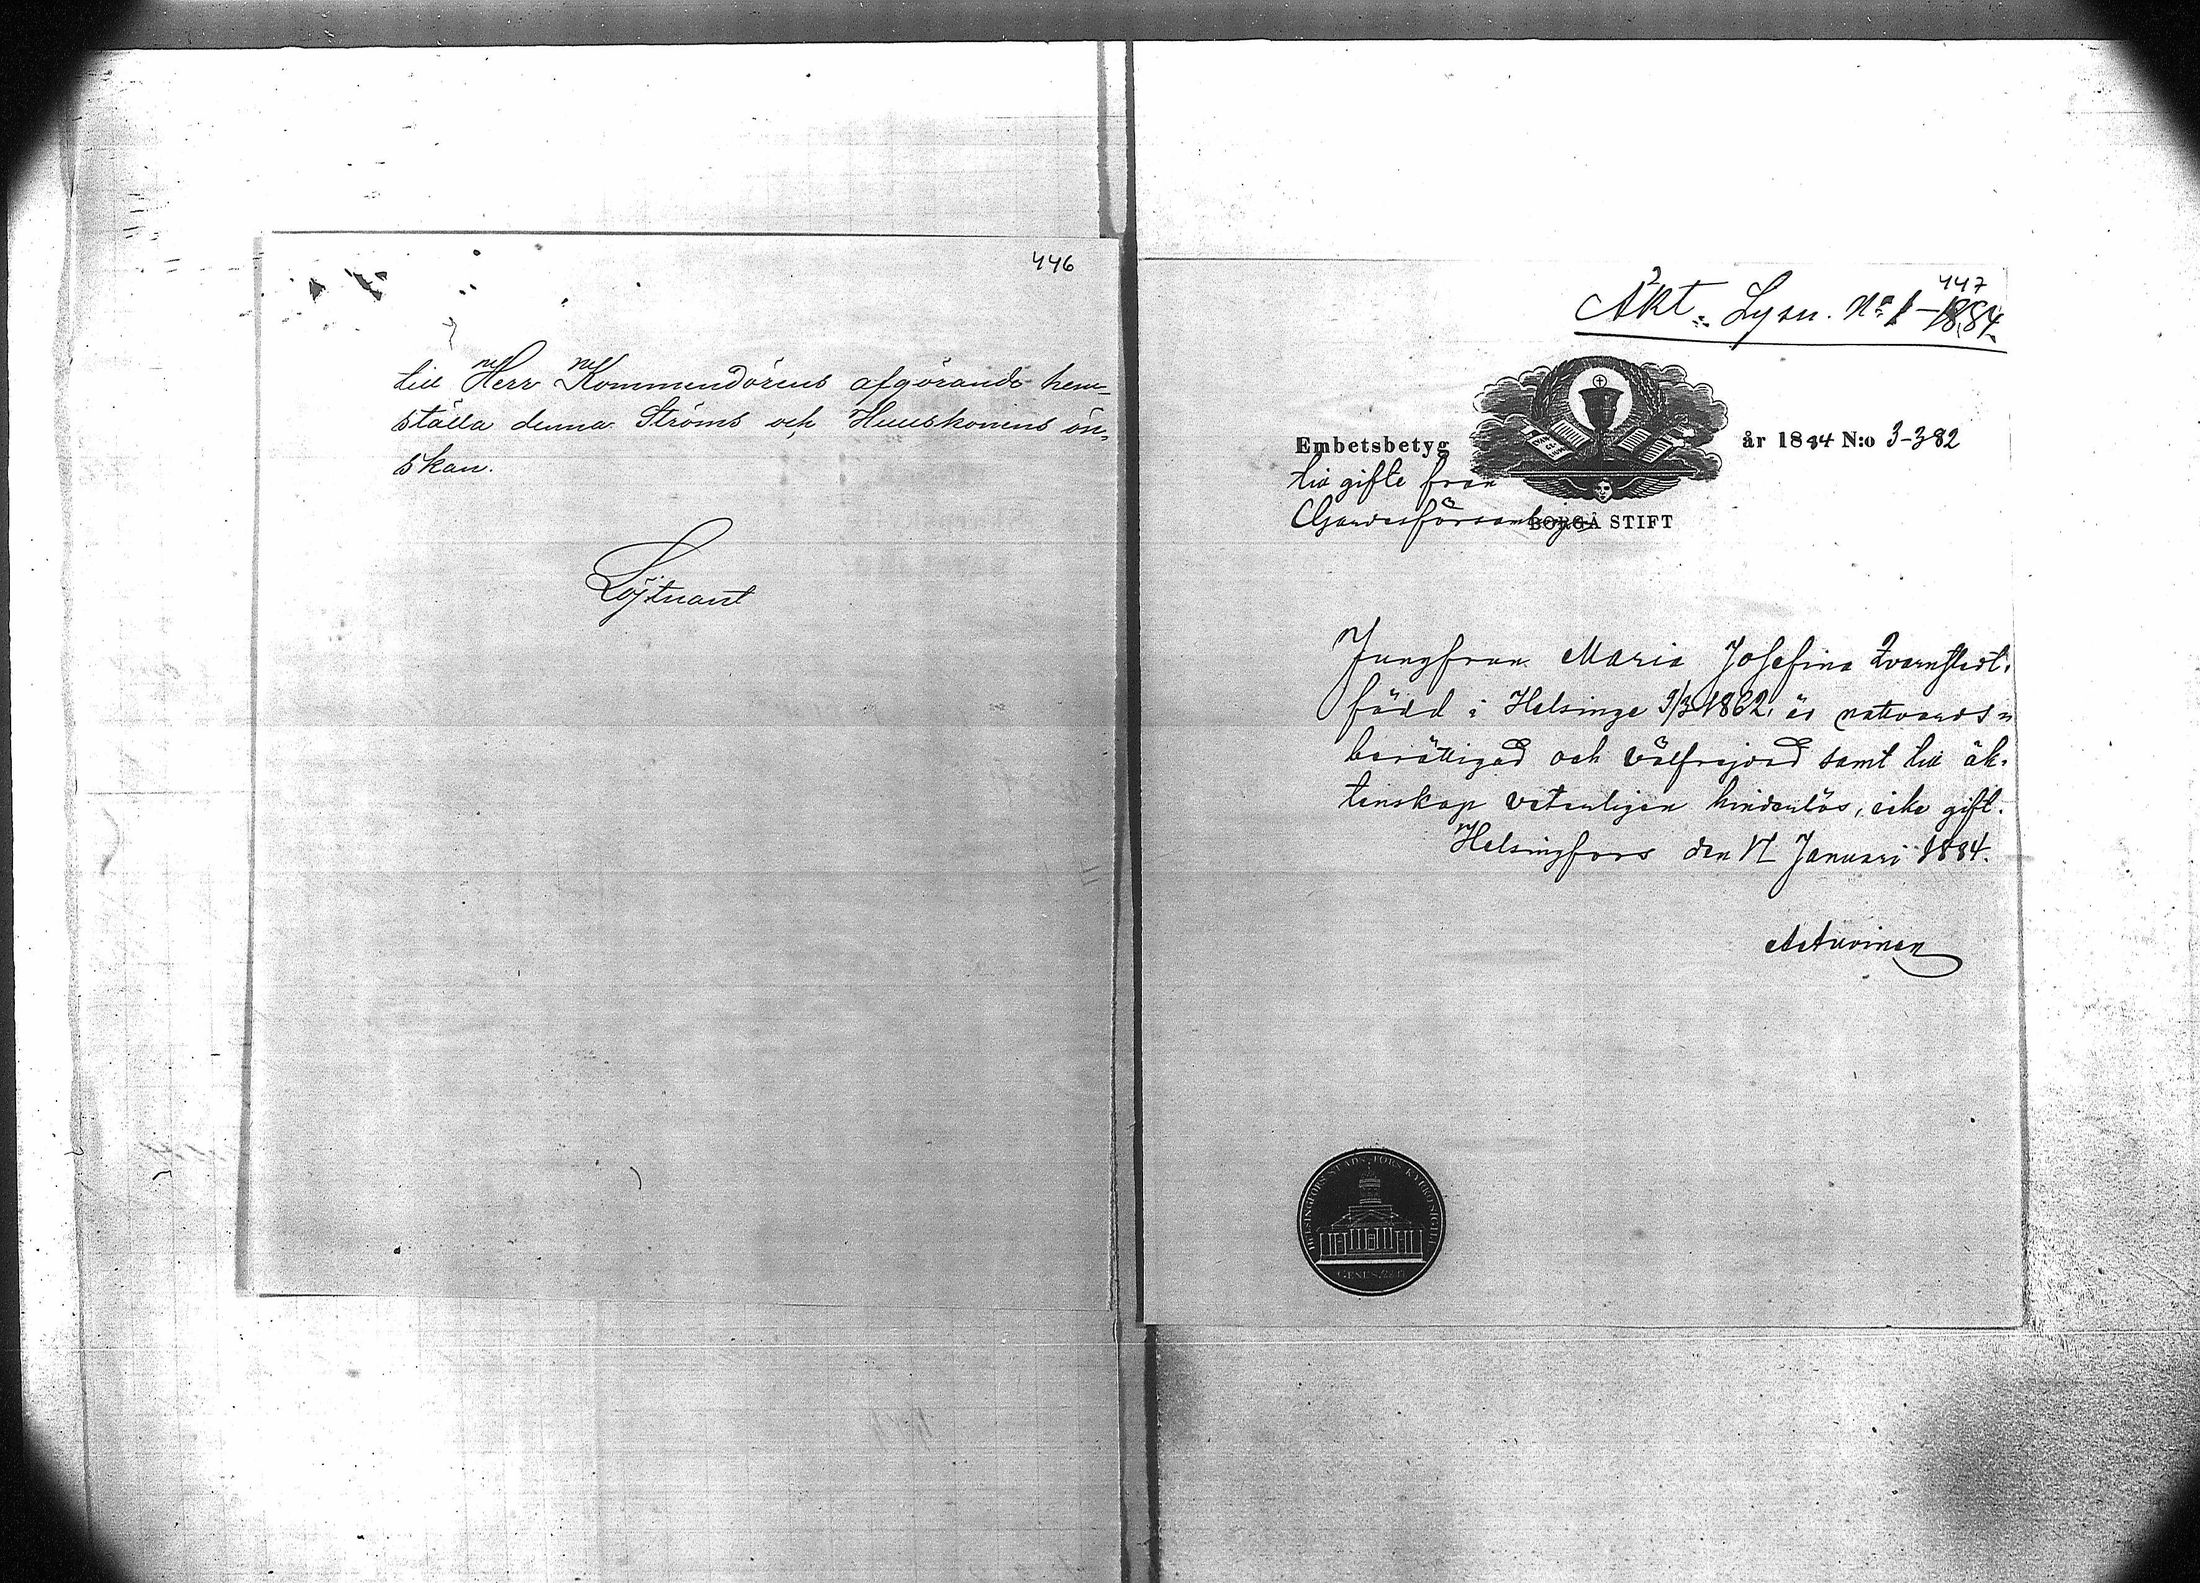 446
till Herr Kommendörens afgörande hem-
ställa denna Ströms och Huuskonens ön-
skan.
Löjtnant
447
Äkt. Lysn. No 1-1884.
Embetsbetyg
år 1884 N:o 3-382
till gifte från
Gardesförsamlingen
BORGÅ STIFT
Jungfrun Maria Josefina Qvarnstedt,
född i Helsinge 9/3 1862, är nattvards-
berättigad och välfrejdad samt till äk-
tenskap veterligen hinderlös, icke gift.
Helsingfors den 17 Januari 1884.
HELSINGFORS STADS FÖRS KYRKO SIGILL